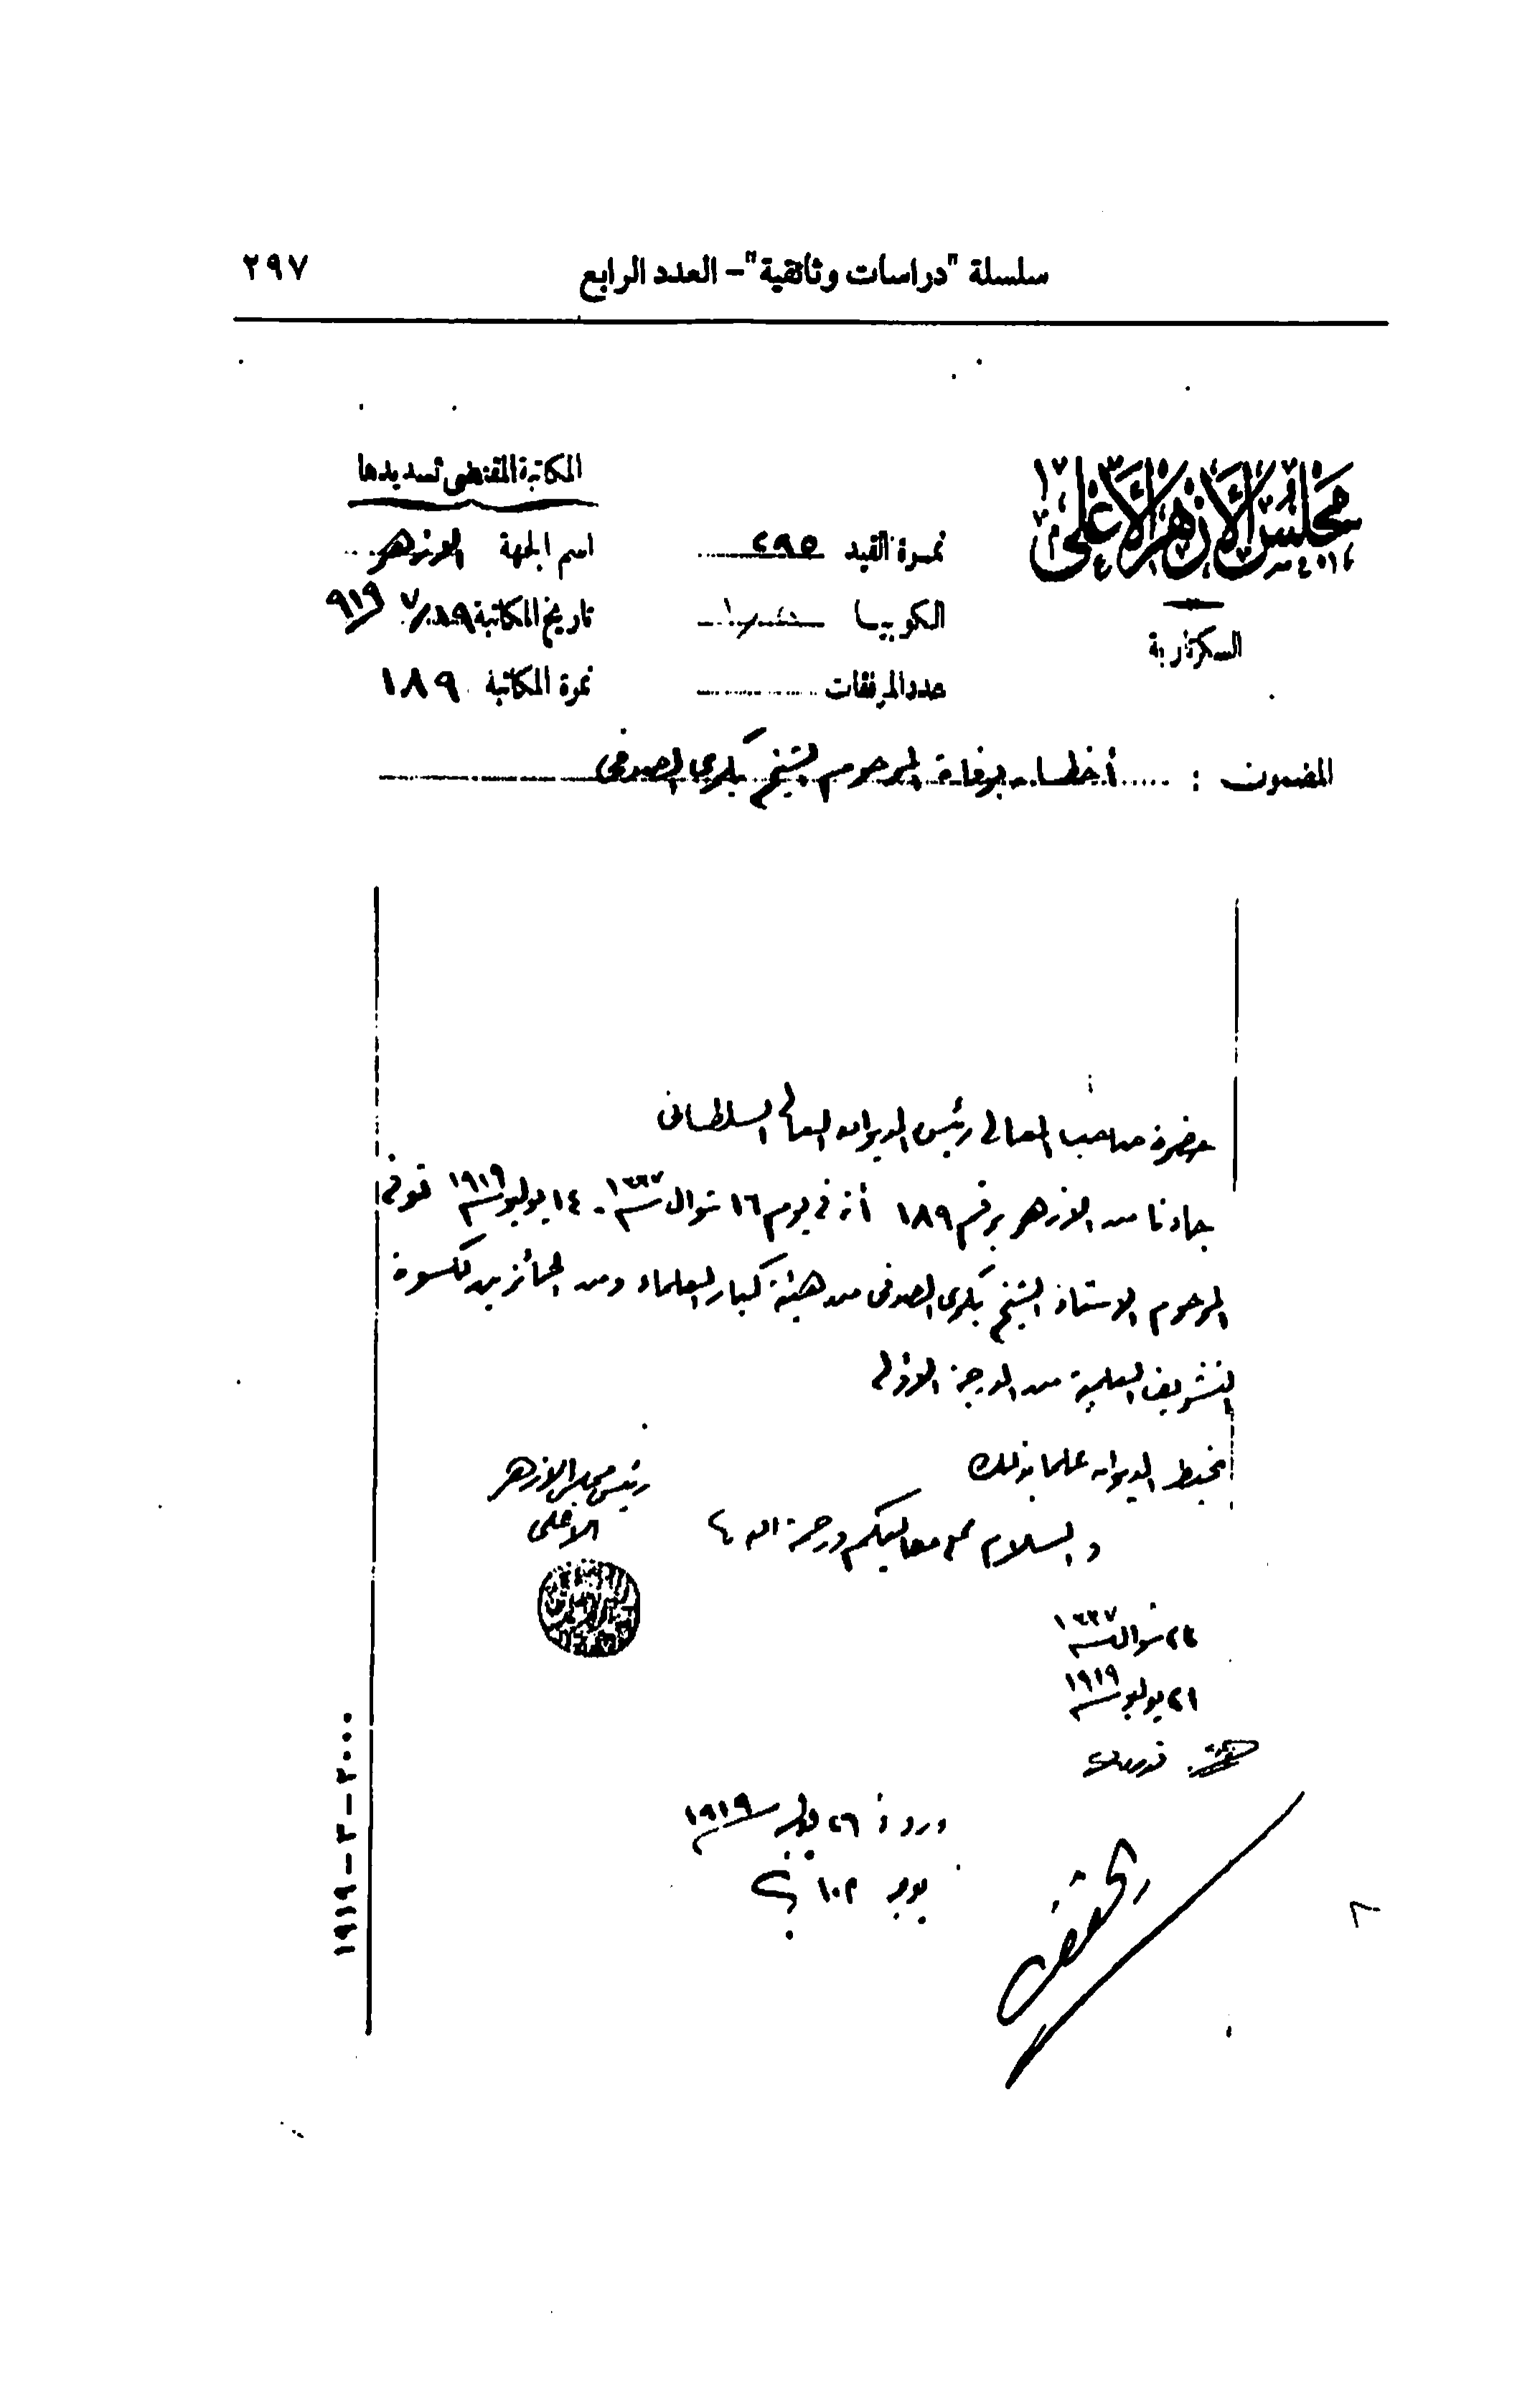 سلسلة "دراسات وثائقية" – العدد الرابع ٢٩٧
مجلس الأزهر الأعلى
السكرتارية
نمرة القيد ٢٩٥
الكوبيا
عدد المرفقات
المكاتبة المقتضى تسديدها
اسم الجهة الازهر
تاريخ المكاتبة
نمرة المكاتبة ١٨٩
المضمون : أخطار بوفاة المرحوم الشيخ بكرى الصدفى
حضرة صاحب المعالى رئيس الديوان العالى السلطانى
جاءنا من الازهر برقم ١٨٩ أنه فى يوم ١٦ شوال سنة ١٣٣٧ - ١٤ يوليو سنة ١٩١٩ توفى
المرحوم الاستاذ الشيخ بكرى الصدفى من هيئة كبار العلماء ومن الحائزين لكسوة
التشريف العلمية من الدرجة الاولى
نحيط الديوان علما بذلك
والسلام على معاليكم ورحمة الله
رئيس مجلس الازهر
الاعلى
شوال سنة ١٣٣٧
٢١ يوليو سنة ١٩١٩
ورد فى ٢٦ يوليو سنة ١٩١٩
١٠٢
١٩١٩-٢-٢٠٠٠